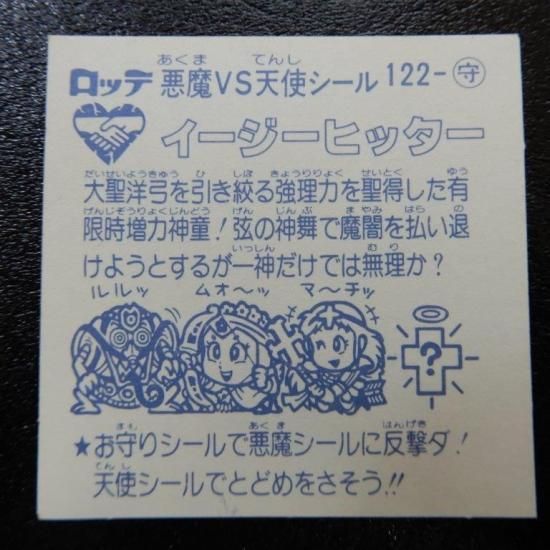 ロッテ 悪魔VS天使シール 122-守
イージーヒッター
大聖洋弓を引き絞る強理力を聖得した有
限時増力神童!弦の神舞で魔闇を払い退
けようとするが一神だけでは無理か?
ルルッ ムオ〜ッ マ〜チッ
?
★お守りシールで悪魔シールに反撃ダ!
天使シールでとどめをさそう!!